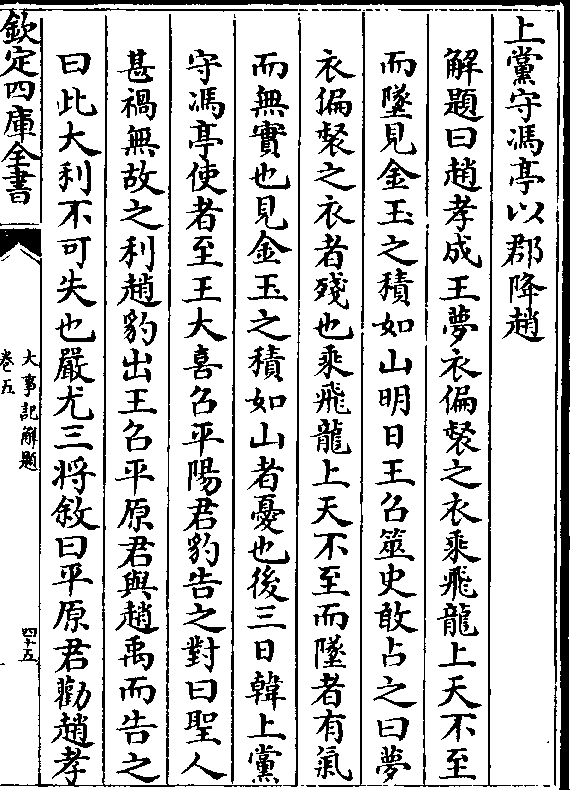 上黨守馮亭以郡降趙
解題曰趙孝成王夢衣偏裻之衣乘飛龍上天不至
而墜見金玉之積如山明日王召筮史敢占之曰夢
衣偏裻之衣者殘也乘飛龍上天不至而墜者有氣
而無實也見金玉之積如山者憂也後三日韓上黨
守馮亭使者至王大喜召平陽君豹告之對曰聖人
甚禍無故之利趙豹出王召平原君與趙禹而告之
曰此大利不可失也嚴尤三将敘曰平原君勸趙孝
欽定四庫全書
大事記解題
卷五
四十五